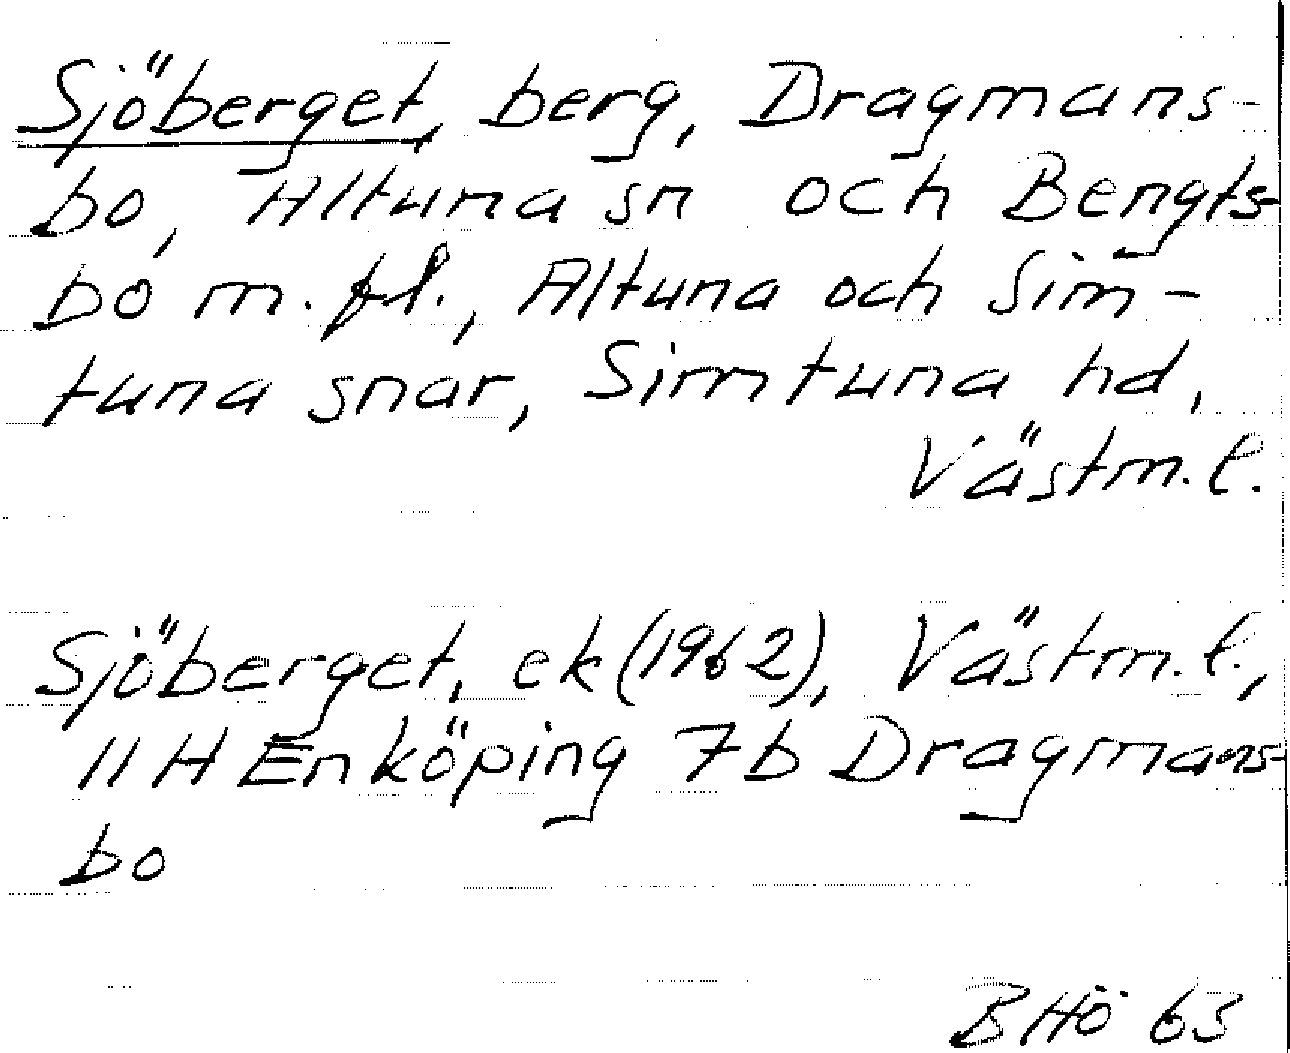 Sjöberget, berg, Dragmans-
bo, Altuna sn och Bengts-
bo m.fl., Altuna och Sim-
tuna snar, Simtuna hd,
Västm.l.
Sjöberget, ek (1962), Västm.l.,
11 H Enköping 7b Dragmans-
bo
BHÖ 63